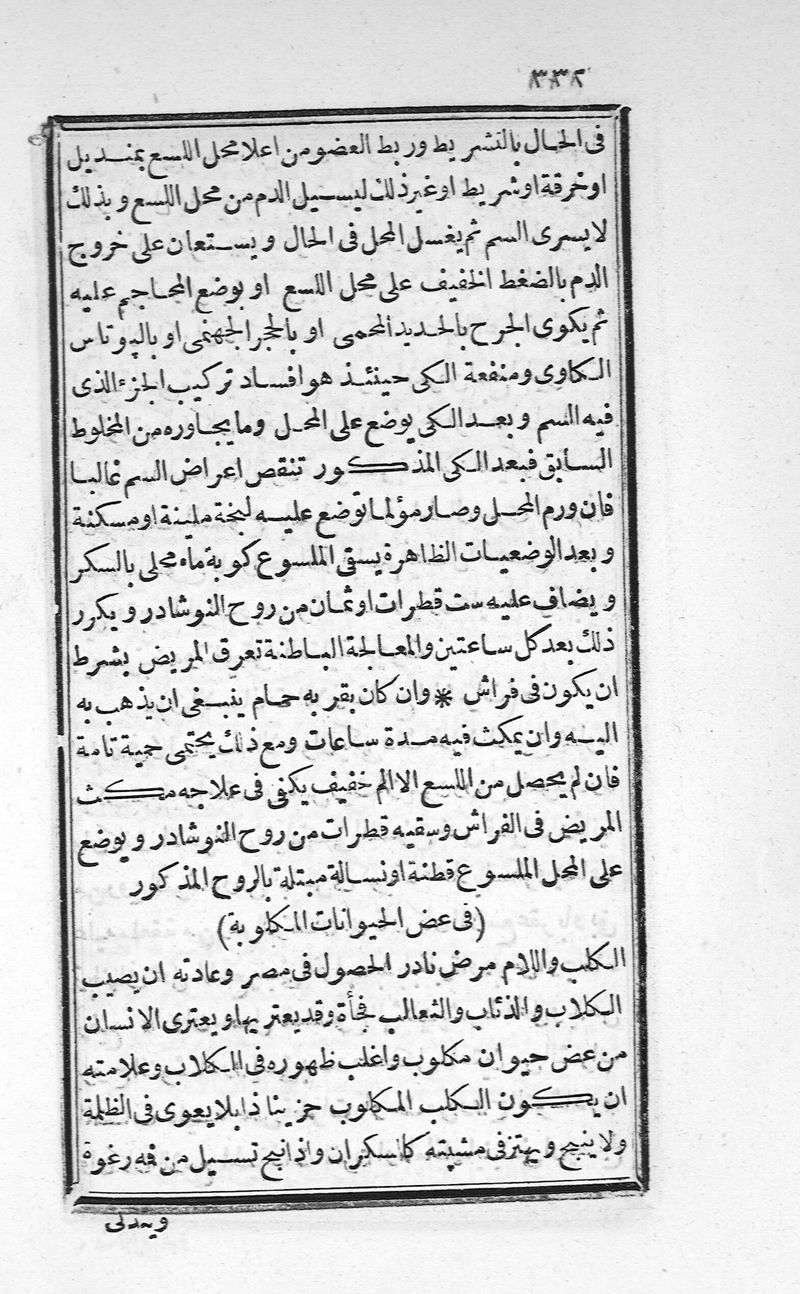 ٣٣٢
فى الحال بالتشريط وربط العضو من اعلا محل اللسع بمنديل
او خرقة او شريط او غير ذلك ليسيل الدم من محل اللسع وبذلك
لا يسرى السم ثم يغسل المحل فى الحال ويستعان على خروج
الدم بالضغط الخفيف على محل اللسع او بوضع المحاجم عليه
ثم يكوى الجرح بالحديد المحمى او بالحجر الجهنمى او بالپوتاس
الكاوى ومنفعة الكى حينئذ هو افساد تركيب الجزء الذى
فيه السم وبعد الكى يوضع على المحل وما يجاوره من المخلوط
السابق فبعد الكى المذكور تنقص اعراض السم غالبا
فان ورم المحل وصار مؤلما توضع عليه لبخة ملينة او مسكنة
وبعد الوضعيات الظاهرة يسقى الملسوع كوبة ماء محلى بالسكر
ويضاف عليه ست قطرات او ثمان من روح النوشادر ويكرر
ذلك بعد كل ساعتين والمعالجة الباطنة تعرق المريض بشرط
ان يكون فى فراش * وان كان بقربه حمام ينبغى ان يذهب به
اليه وان يمكث فيه مدة ساعات ومع ذلك يحتمى حمية تامة
فان لم يحصل من اللسع الا الم خفيف يكفى فى علاجه مكث
المريض فى الفراش وسقيه قطرات من روح النوشادر ويوضع
على المحل الملسوع قطنة او نسالة مبتلة بالروح المذكور
(فى عض الحيوانات المكلوبة)
الكلب واللام مرض نادر الحصول فى مصر وعادته ان يصيب
الكلاب والذئاب والثعالب فجأة وقد يعتريها ويعترى الانسان
من عض حيوان مكلوب واغلب ظهوره فى الكلاب وعلامته
ان يكون الكلب المكلوب حزينا ذابلا يعوى فى الظلمة
ولا ينبح ويهتز فى مشيته كالسكران واذا نبح تسيل من فمه رغوة
ويدلى